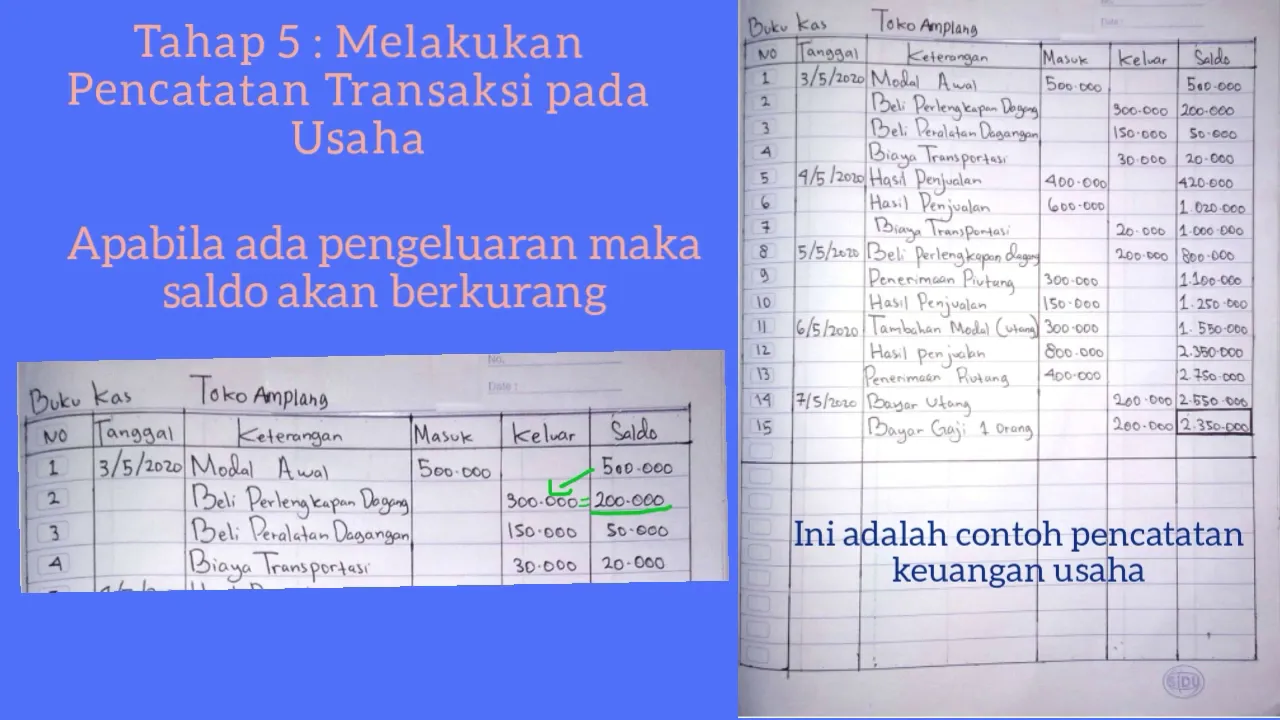 Tahap 5 : Melakukan
Pencatatan Transaksi pada
Usaha
Apabila ada pengeluaran maka
saldo akan berkurang
No.
Date :
Buku Kas Toko Amplang
NO Tanggal Keterangan Masuk Keluar Saldo
1 3/5/2020 Modal Awal 500.000 500.000
2 Beli Perlengkapan Dagang 300.000 = 200.000
3 Beli Peralatan Dagangan 150.000 50.000
4 Biaya Transportasi 30.000 20.000
Buku Kas Toko Amplang
Date :
NO Tanggal Keterangan Masuk Keluar Saldo
1 3/5/2020 Modal Awal 500.000 500.000
2 Beli Perlengkapan Dagang 300.000 200.000
3 Beli Peralatan Dagangan 150.000 50.000
4 Biaya Transportasi 30.000 20.000
5 4/5/2020 Hasil Penjualan 400.000 420.000
6 Hasil Penjualan 600.000 1.020.000
7 Biaya Transportasi 20.000 1.000.000
8 5/5/2020 Beli Perlengkapan dagang 200.000 800.000
9 Penerimaan Piutang 300.000 1.100.000
10 Hasil Penjualan 150.000 1.250.000
11 6/5/2020 Tambahan Modal (utang) 300.000 1.550.000
12 Hasil penjualan 800.000 2.350.000
13 Penerimaan Piutang 400.000 2.750.000
14 7/5/2020 Bayar Utang 200.000 2.550.000
15 Bayar Gaji 1 orang 200.000 2.350.000
Ini adalah contoh pencatatan
keuangan usaha
SIDU